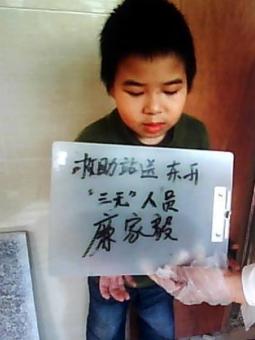 救助站送 东升
"三无"人员
廉家毅